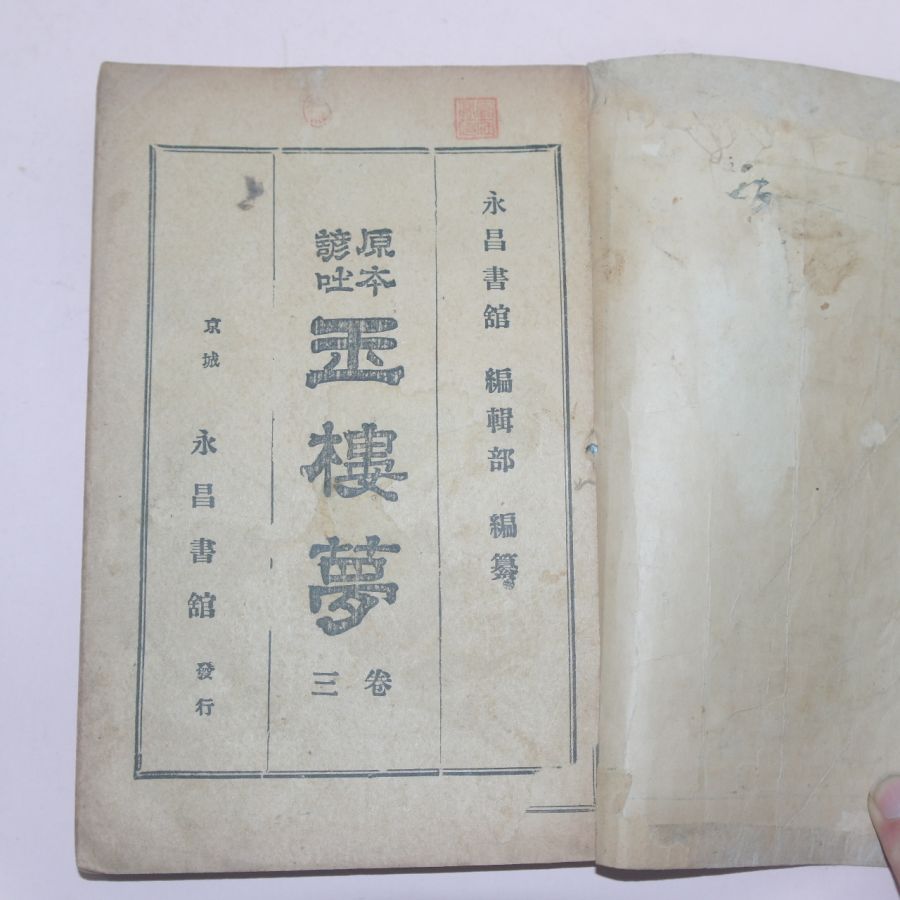 永昌書舘 編輯部 編纂
原本
諺吐
玉樓夢
卷三
京城 永昌書舘 發行